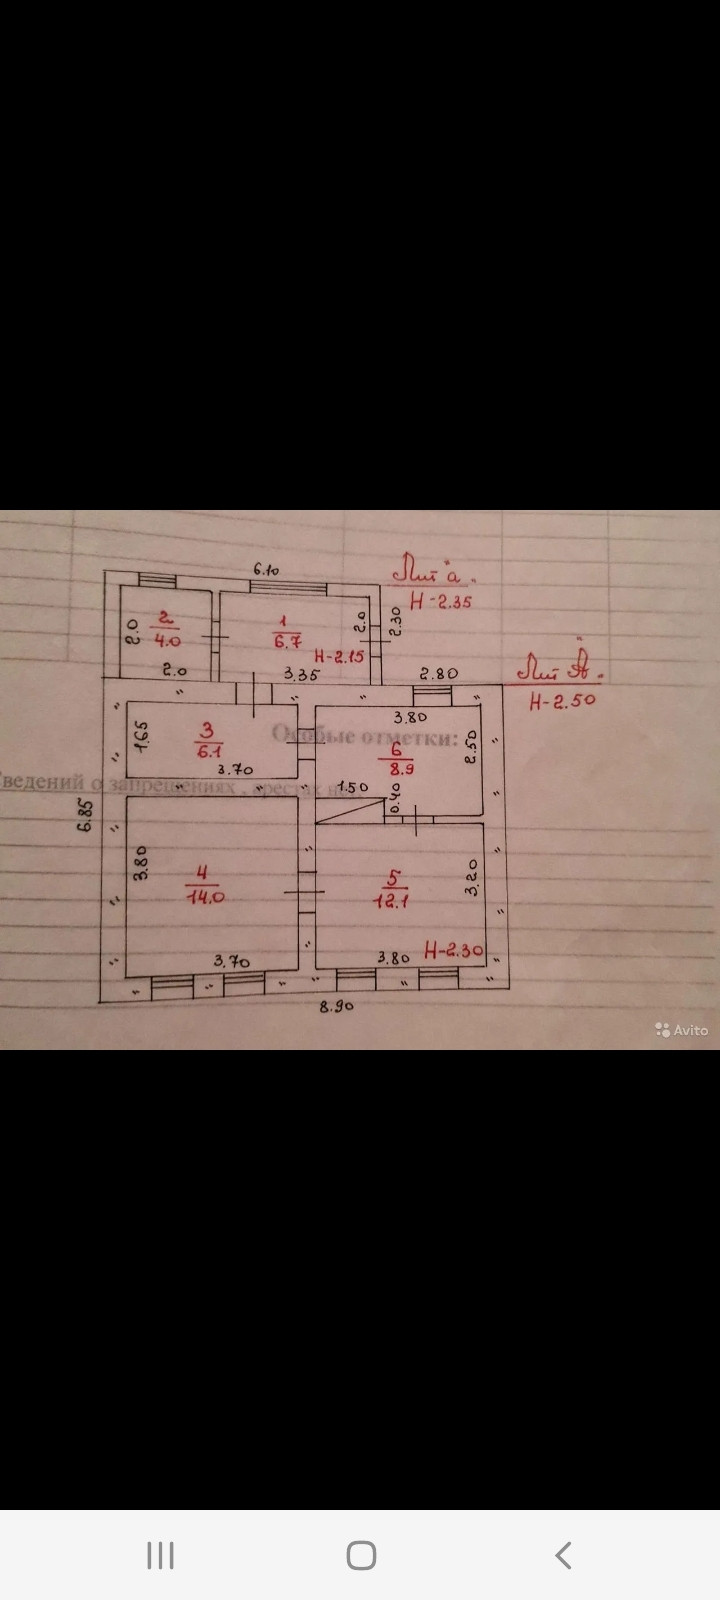 6.10
Лит "а".
Н-2.35
2.0
2
4.0
2.0
1
6.7
Н-2.15
3.35
2.0
2.30
2.80
Лит "А".
Н-2.50
1.65
3
6.1
3.70
Особые отметки:
3.80
6
8.9
2.50
ведений о запрещениях , арестах нет.
1.50
0.40
6.85
3.80
4
14.0
3.70
5
12.1
3.20
3.80
Н-2.30
8.90
Avito